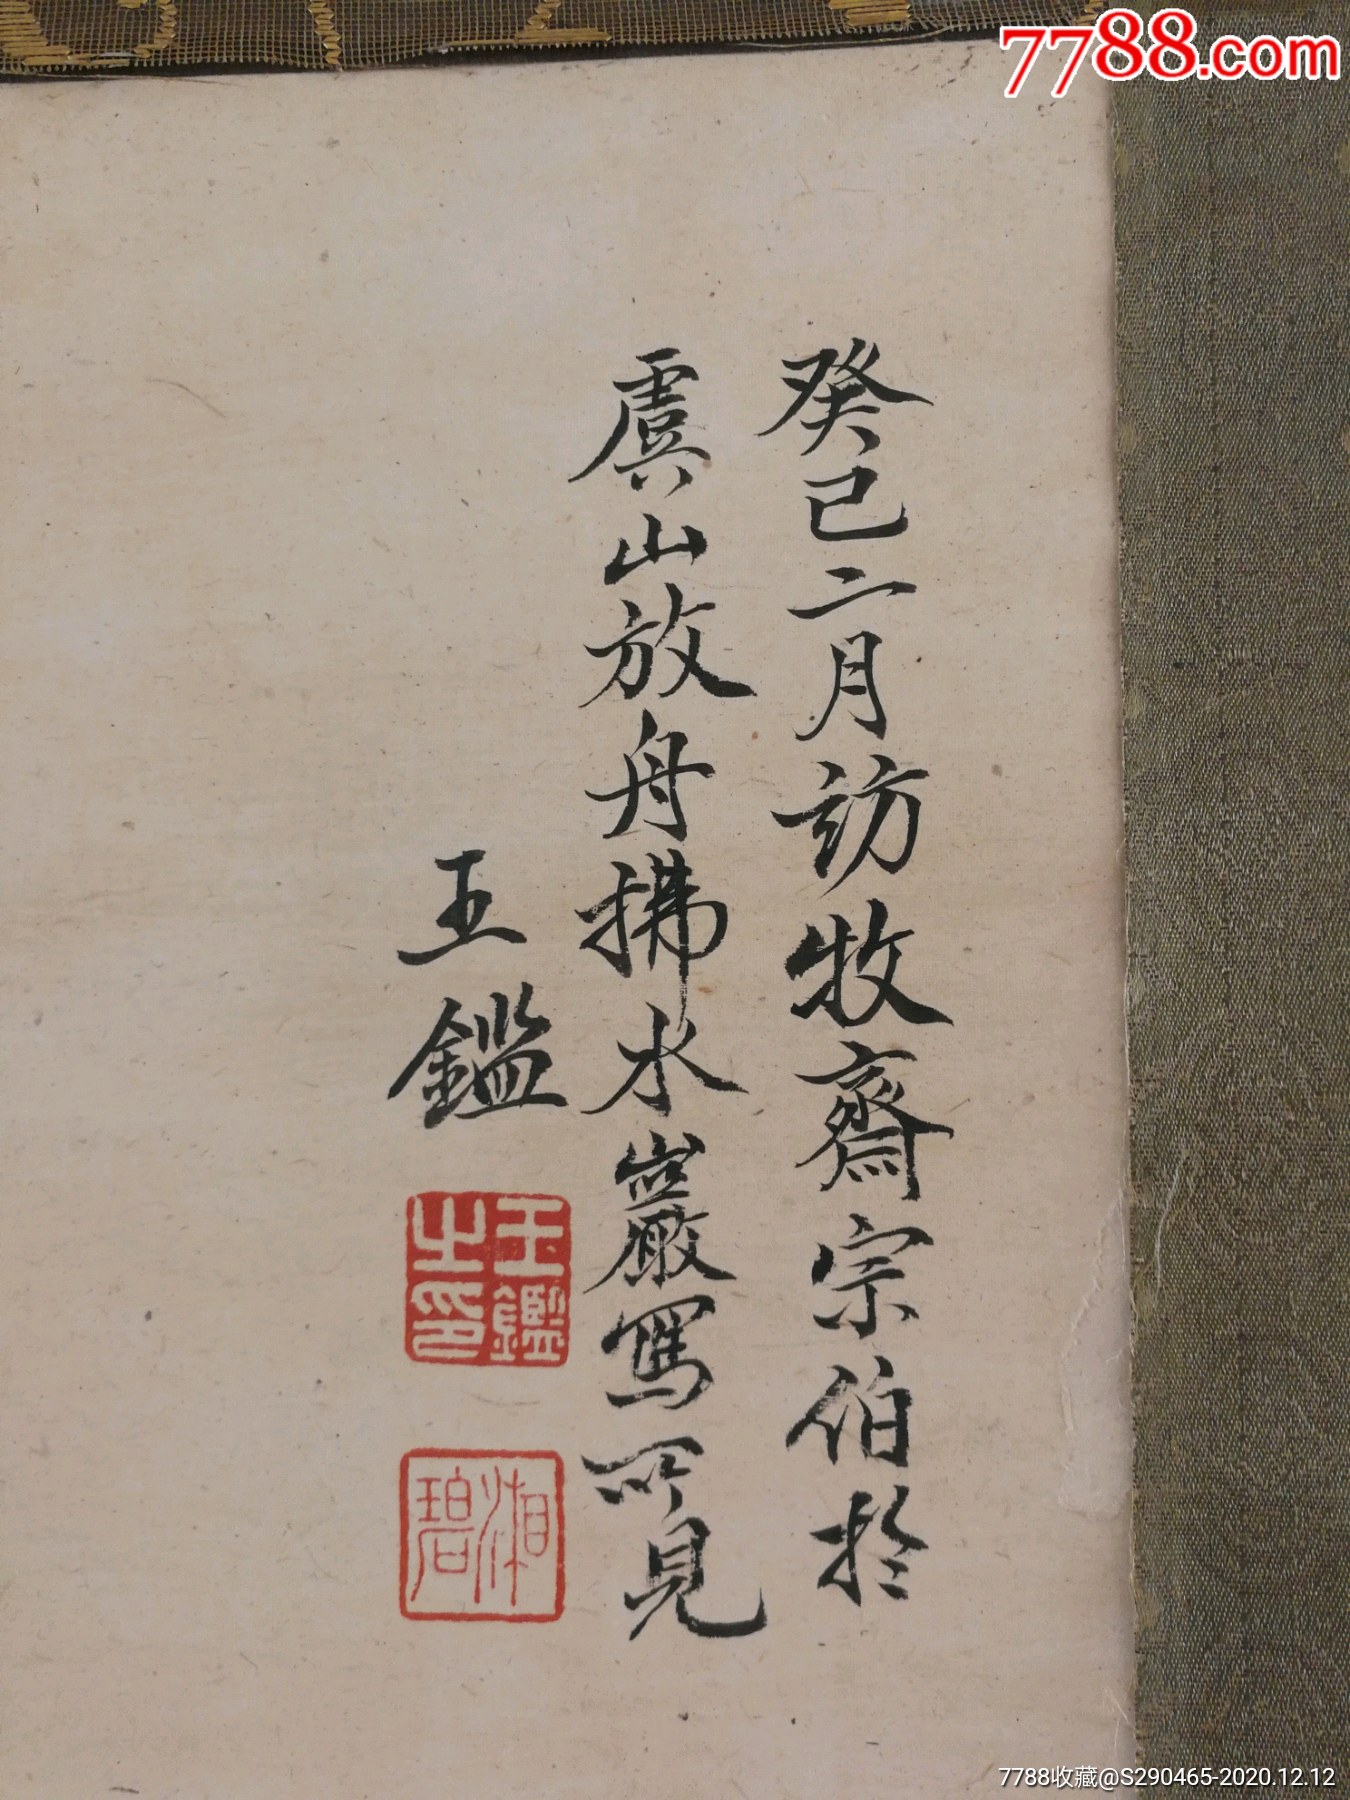 7788.com
癸巳二月訪牧齋宗伯於
虞山放舟拂水巖寫所見
王鑑
王鑑之印
湘碧
7788收藏@S290465-2020.12.12